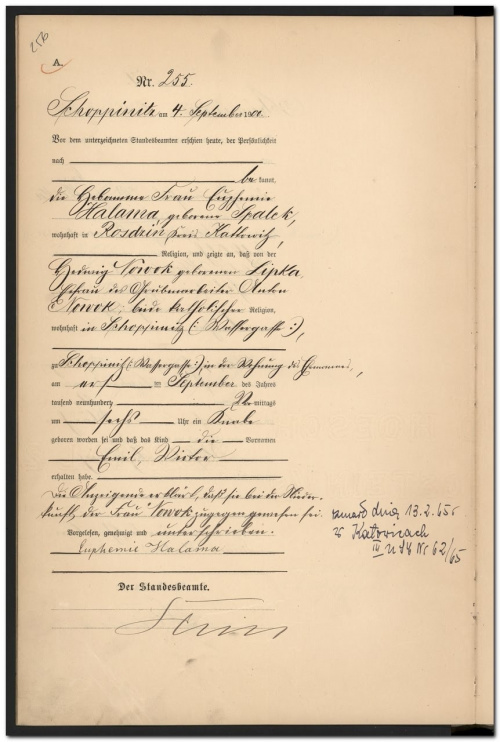 256
A.
Nr. 255.
Schoppinitz am 4. September 1900.
Vor dem unterzeichneten Standesbeamten erschien heute, der Persönlichkeit
nach
be kannt,
die Hebamme Frau Euphemie
Halama, geborene Spalek,
wohnhaft in Rosdzin Kreis Kattowitz,
Religion, und zeigte an, daß von der
Hedwig Nowok geborenen Lipka,
Ehefrau des Grubenarbeiter Anton
Nowok, beide katholischer Religion,
wohnhaft in Schoppinitz (: Wassergasse :),
zu Schoppinitz (: Wassergasse :) in der Wohnung des Ehemannes,
am ersten September des Jahres
tausend neunhundert Vor mittags
um sechs Uhr ein Knabe
geboren worden sei und daß das Kind die Vornamen
Emil, Victor
erhalten habe.
Die Anzeigende erklärt, daß sie bei der Nieder-
kunft der Frau Nowok zugegen gewesen sei.
Vorgelesen, genehmigt und unterschrieben.
Euphemie Halama
zmarł dnia 13.2.65r
w Katowicach
III USC Nr 62/65
Der Standesbeamte.